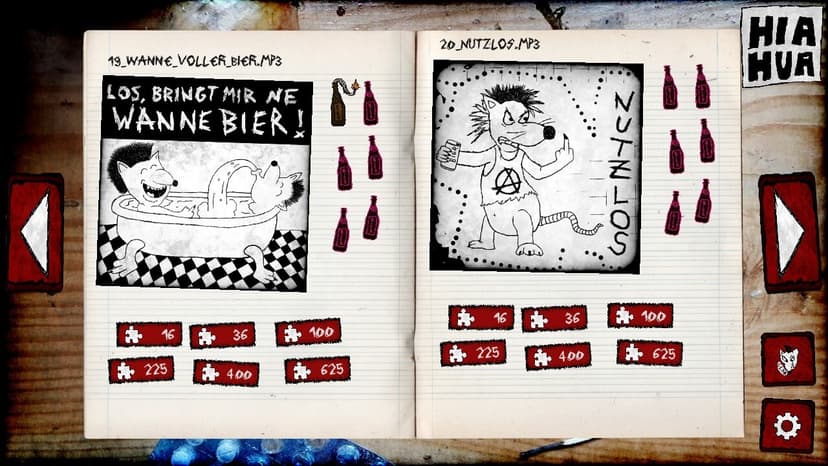 19_WANNE_VOLLER_BIER.MP3
LOS, BRINGT MIR NE
WANNE BIER!
16
36
100
225
400
625
20_NUTZLOS.MP3
NUTZLOS
16
36
100
225
400
625
HIA
HUA